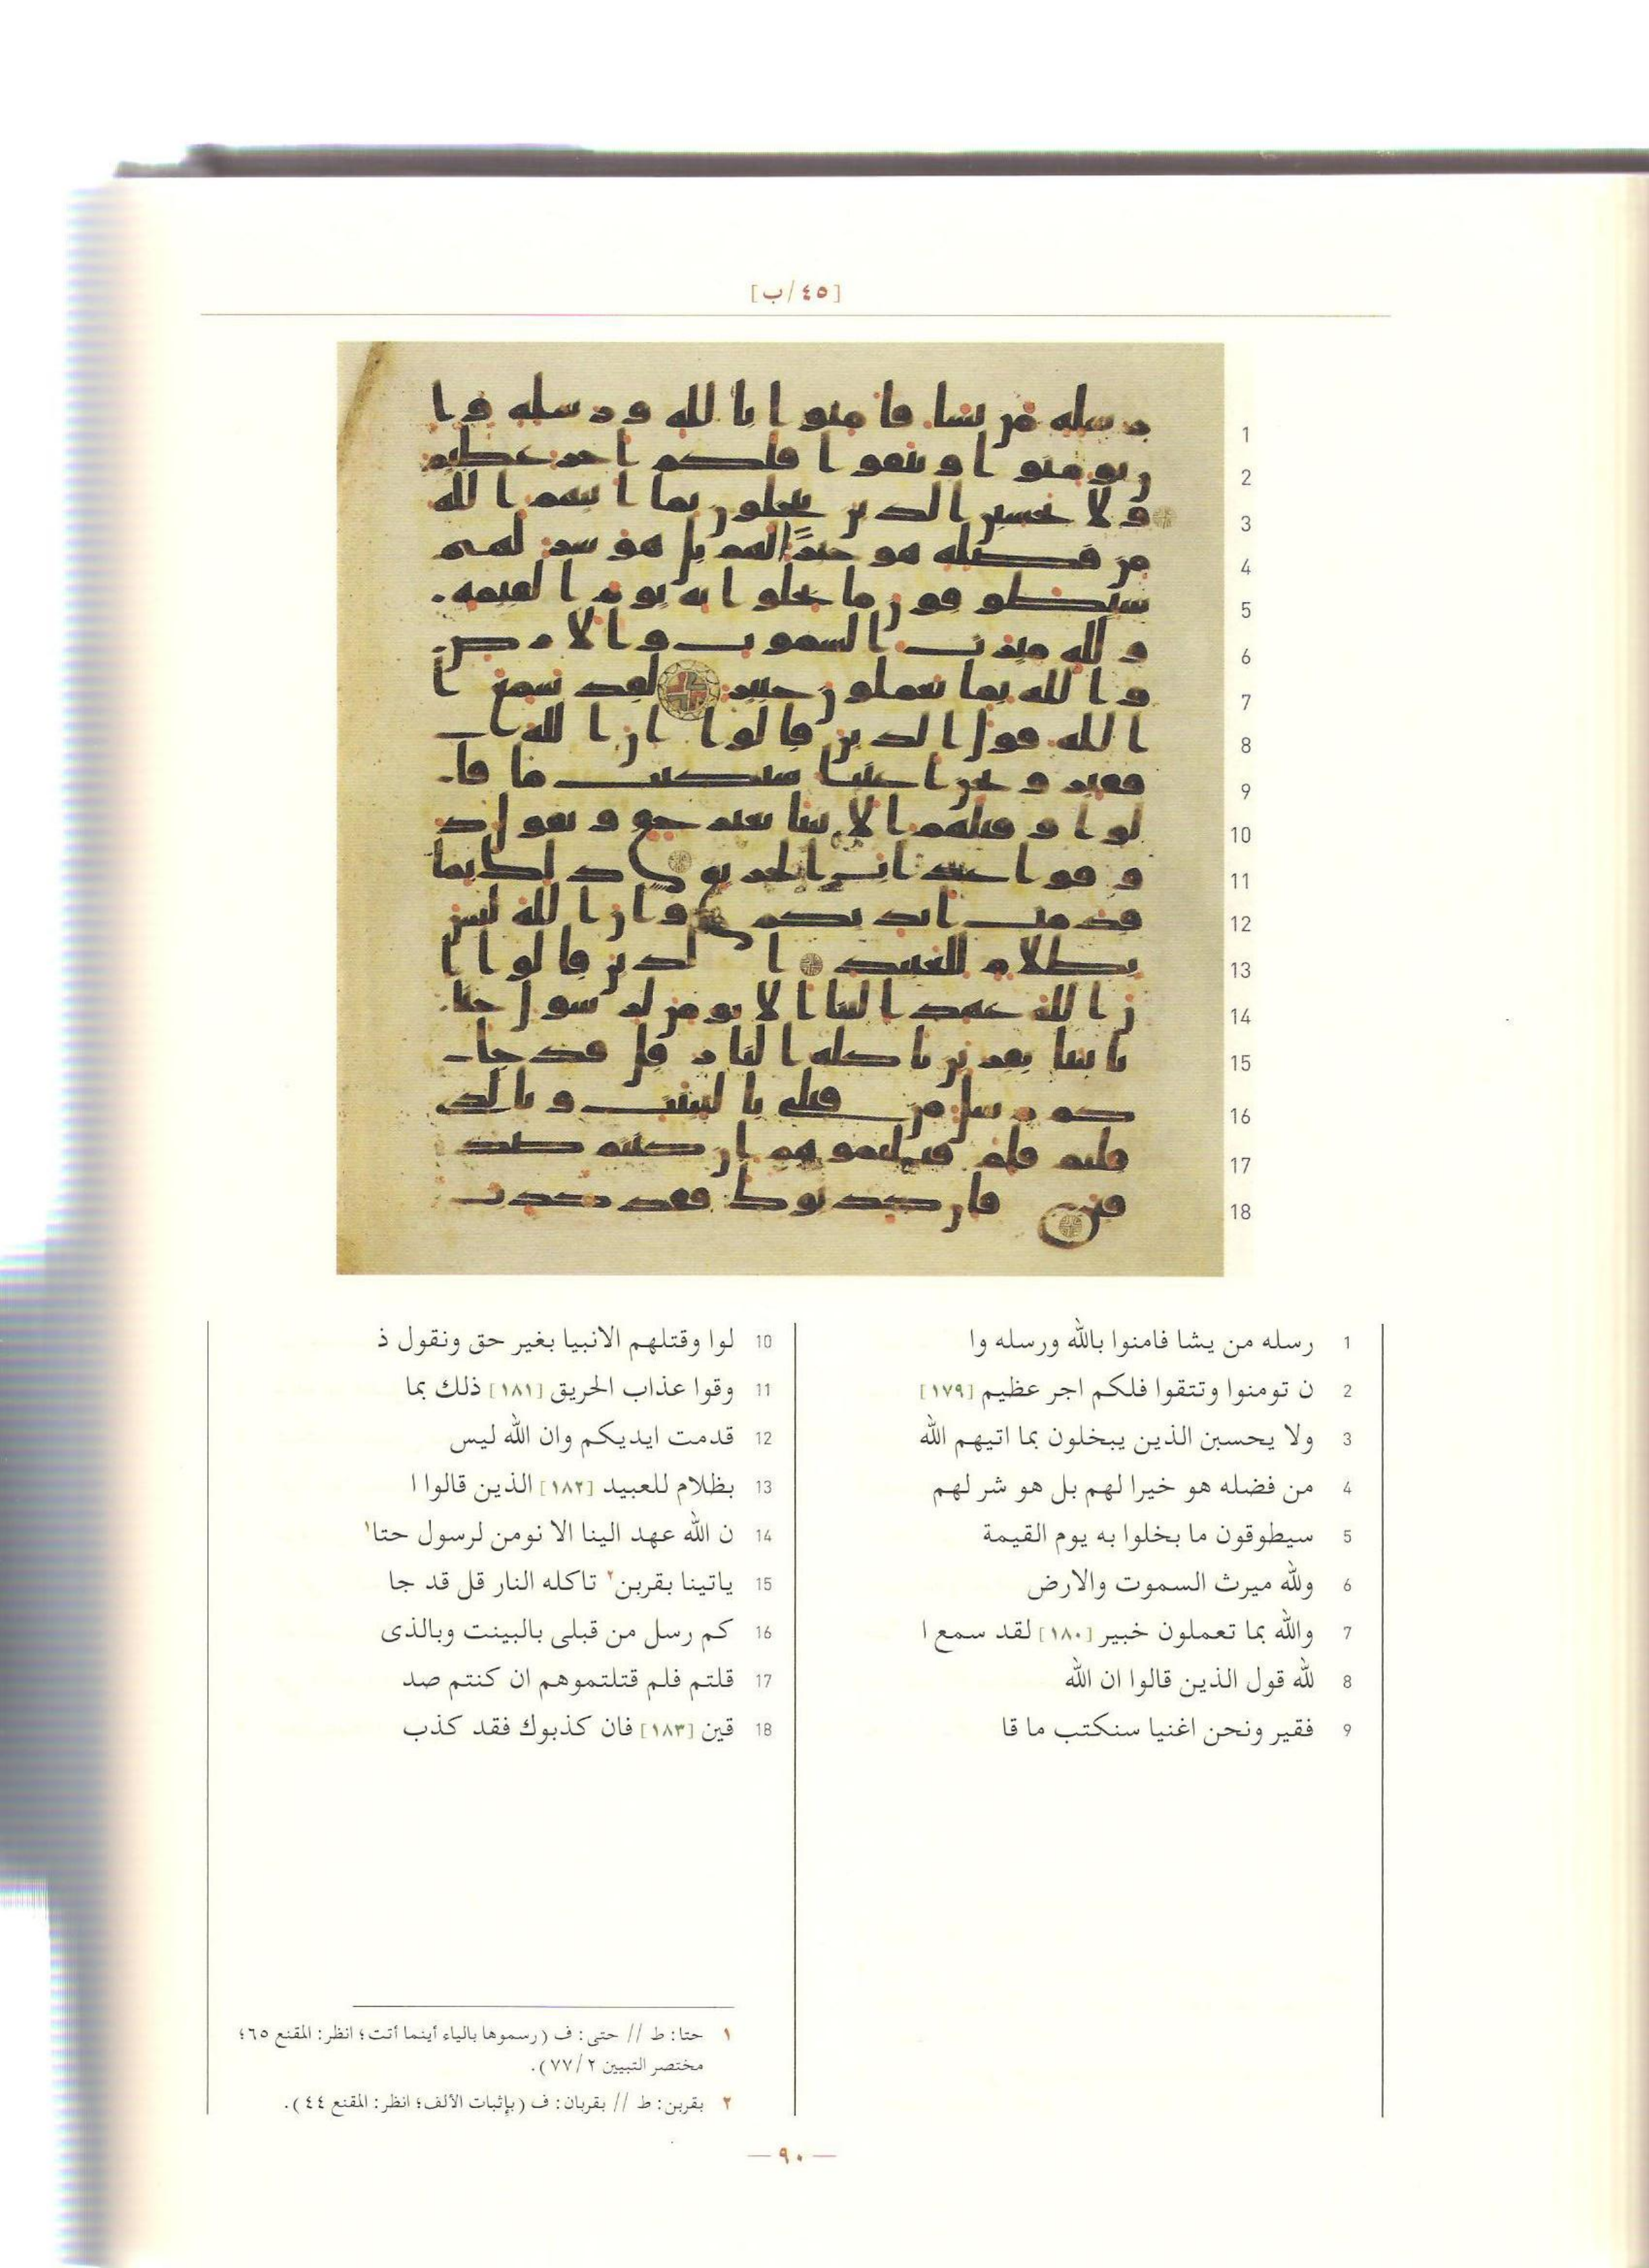 [٤٥/ب]
1
2
3
4
5
6
7
8
9
10
11
12
13
14
15
16
17
18
1 رسله من يشا فامنوا بالله ورسله وا
2 ن تومنوا وتتقوا فلكم اجر عظيم [١٧٩]
3 ولا يحسبن الذين يبخلون بما اتيهم الله
4 من فضله هو خيرا لهم بل هو شر لهم
5 سيطوقون ما بخلوا به يوم القيمة
6 ولله ميرث السموت والارض
7 والله بما تعملون خبير [١٨٠] لقد سمع ا
8 لله قول الذين قالوا ان الله
9 فقير ونحن اغنيا سنكتب ما قا
10 لوا وقتلهم الانبيا بغير حق ونقول ذ
11 وقوا عذاب الحريق [١٨١] ذلك بما
12 قدمت ايديكم وان الله ليس
13 بظلام للعبيد [١٨٢] الذين قالوا ا
14 ن الله عهد الينا الا نومن لرسول حتا١
15 ياتينا بقربن٢ تاكله النار قل قد جا
16 كم رسل من قبلى بالبينت وبالذى
17 قلتم فلم قتلتموهم ان كنتم صد
18 قين [١٨٣] فان كذبوك فقد كذب
١ حتا: ط // حتى: ف (رسموها بالياء أينما أتت؛ انظر: المقنع ٦٥؛
مختصر التبيين ٧٧/٢).
٢ بقربن: ط // بقربان: ف (بإثبات الألف؛ انظر: المقنع ٤٤).
— ٩٠ —